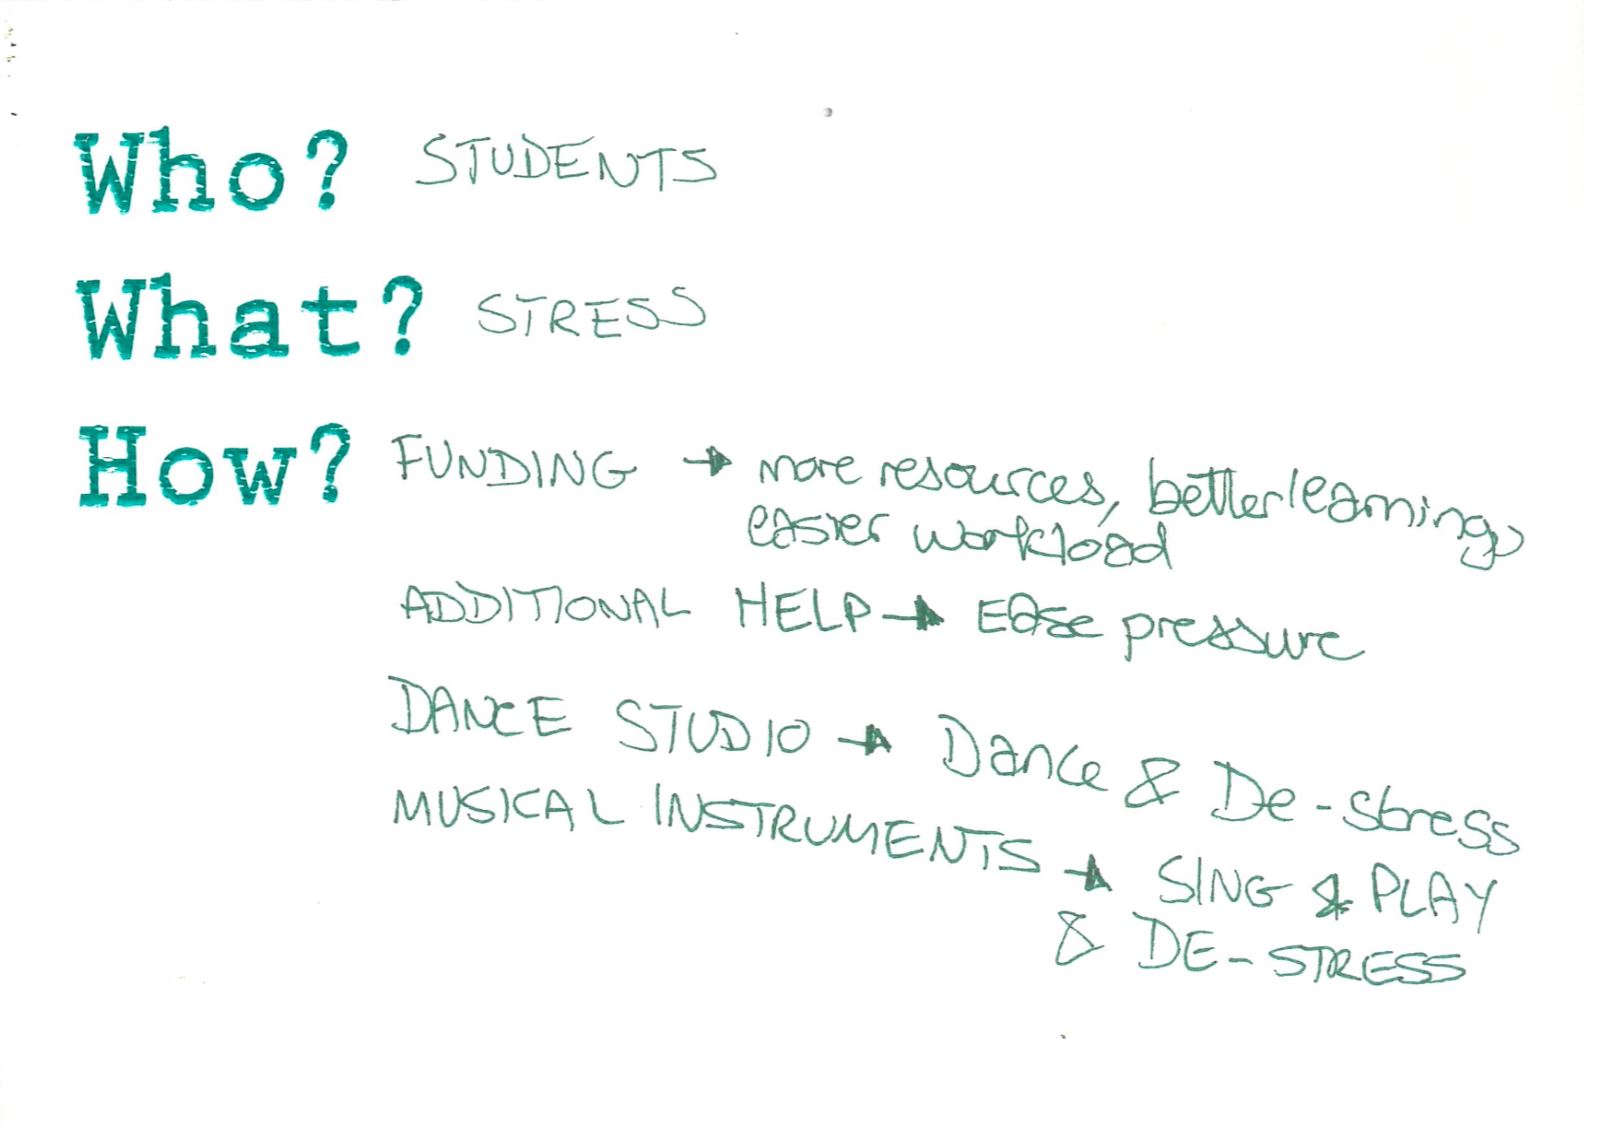 Who? STUDENTS
What? STRESS
How? FUNDING → more resources, better learning,
easier workload
ADDITIONAL HELP → Ease pressure
DANCE STUDIO → Dance & De-stress
MUSICAL INSTRUMENTS → SING & PLAY
& DE-STRESS